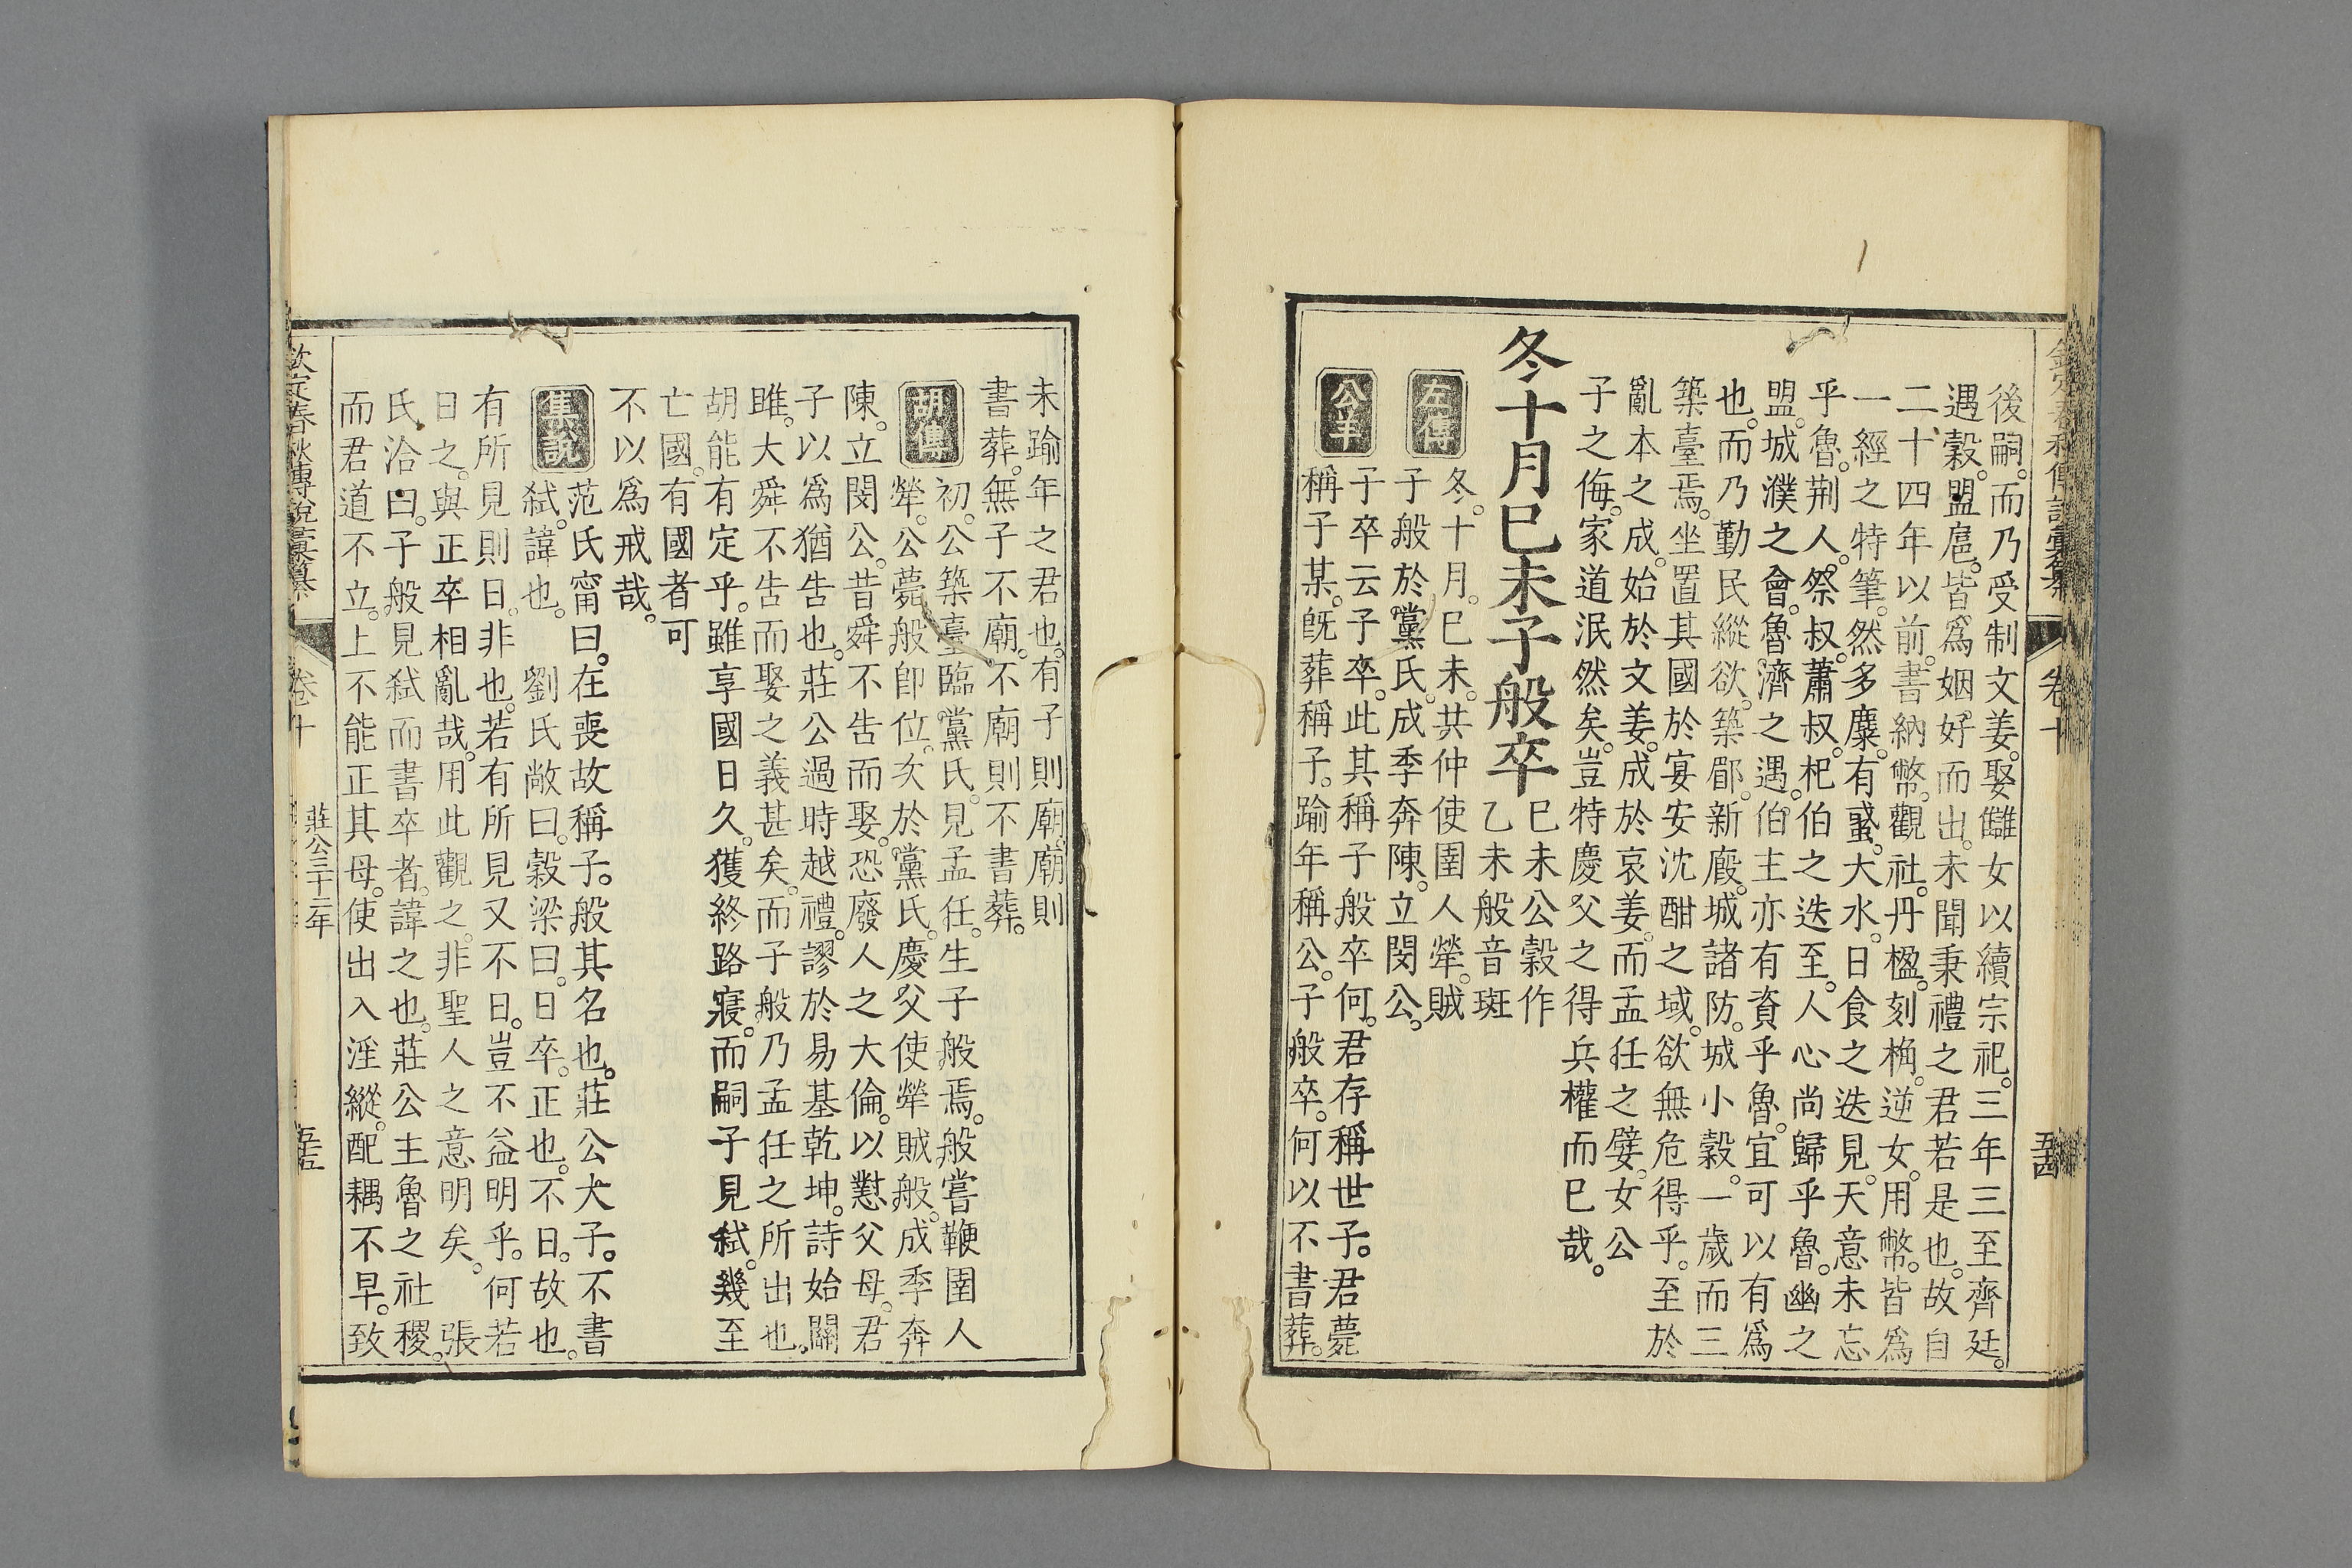 欽定春秋傳說彙纂
卷十
五十四
後嗣。而乃受制文姜。娶讎女以續宗祀。三年三至齊廷。
遇穀。盟扈。皆爲姻好而出。未聞秉禮之君若是也。故自
二十四年以前。書納幣。觀社。丹楹。刻桷。逆女。用幣。皆爲
一經之特筆。然多麋。有蜮。大水。日食之迭見。天意未忘
乎魯。荆人。祭叔。蕭叔。杞伯之迭至。人心尚歸乎魯。幽之
盟。城濮之會。魯濟之遇。伯主亦有資乎魯。宜可以有爲
也。而乃勤民縱欲。築郿。新廐。城諸防。城小穀。一歲而三
築臺焉。坐置其國於宴安沈酣之域。欲無危得乎。至於
亂本之成。始於文姜。成於哀姜。而孟任之嬖。女公
子之侮。家道泯然矣。豈特慶父之得兵權而已哉。
冬十月巳未子般卒
巳未公穀作
乙未般音班
左傳
冬。十月。巳未。共仲使圉人犖。賊
子般於黨氏。成季奔陳。立閔公。
公羊
子卒云子卒。此其稱子般卒何。君存稱世子。君薨
稱子某。旣葬稱子。踰年稱公。子般卒。何以不書葬。
未踰年之君也。有子則廟。廟則
書葬。無子不廟。不廟則不書葬。
胡傳
初。公築臺臨黨氏。見孟任。生子般焉。般嘗鞭圉人
犖。公薨。般卽位。次於黨氏。慶父使犖賊般。成季奔
陳。立閔公。昔舜不告而娶。恐廢人之大倫。以懟父母。君
子以爲猶告也。莊公過時越禮。謬於易基乾坤。詩始關
雎。大舜不告而娶之義甚矣。而子般乃孟任之所出也。
胡能有定乎。雖享國日久。獲終路寢。而嗣子見弒。幾至
亡國。有國者可
不以爲戒哉。
集說
范氏甯曰。在喪故稱子。般其名也。莊公大子。不書
弒。諱也。劉氏敞曰。穀梁曰。日卒。正也。不日。故也。
有所見則日。非也。若有所見又不日。豈不益明乎。何若
日之。與正卒相亂哉。用此觀之。非聖人之意明矣。張
氏洽曰。子般見弒而書卒者。諱之也。莊公主魯之社稷。
而君道不立。上不能正其母。使出入淫縱。配耦不早。致
欽定春秋傳說彙纂
卷十
莊公三十二年
五十五